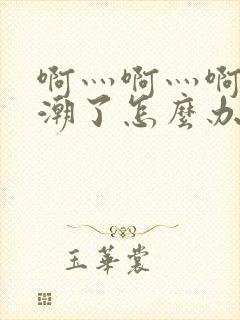 啊灬啊灬啊
潮了怎麼办
玉華裳